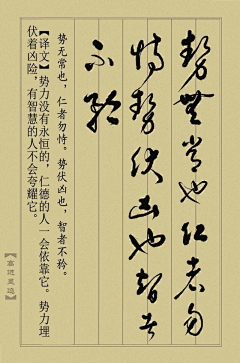 勢無常也仁者勿
恃勢伏凶也智者
不矜
势无常也，仁者勿恃。势伏凶也，智者不矜。
【译文】势力没有永恒的，仁德的人一会依靠它。势力埋
伏着凶险，有智慧的人不会夸耀它。